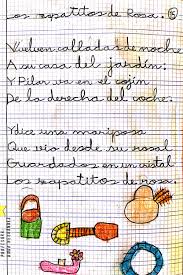 Los zapatitos de Rosa.
Vuelven calladas de noche
A su casa del jardín:
Y Pilar va en el cojín
De la derecha del coche.
Y dice una mariposa
Que vio desde su rosal
Guardados en un cristal
Los zapatitos de rosa.